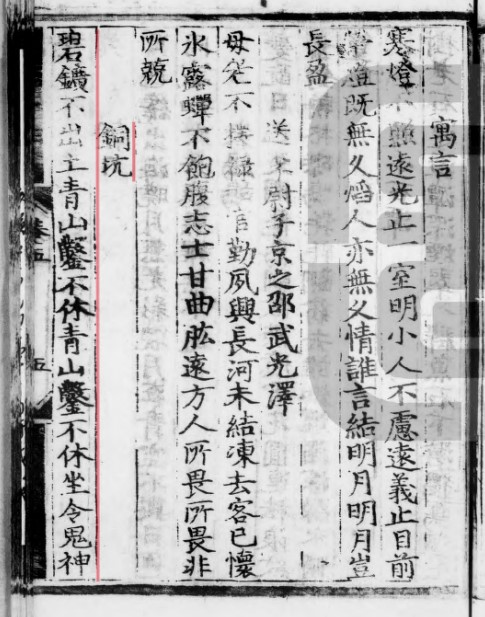 寓言
寒燈不照遠光止一室明小人不慮遠義止目前
燈既無久熖人亦無久情誰言結明月明月豈
長盈
送李尉子京之邵武光澤
母老不擇祿官勤夙興長河未結凍去客已懷
氷露蟬不飽腹志士甘曲肱遠方人所畏所畏非
所兢
銅坑
碧鑛不出土青山鑿不休青山鑿不休坐令鬼神
卷五
五